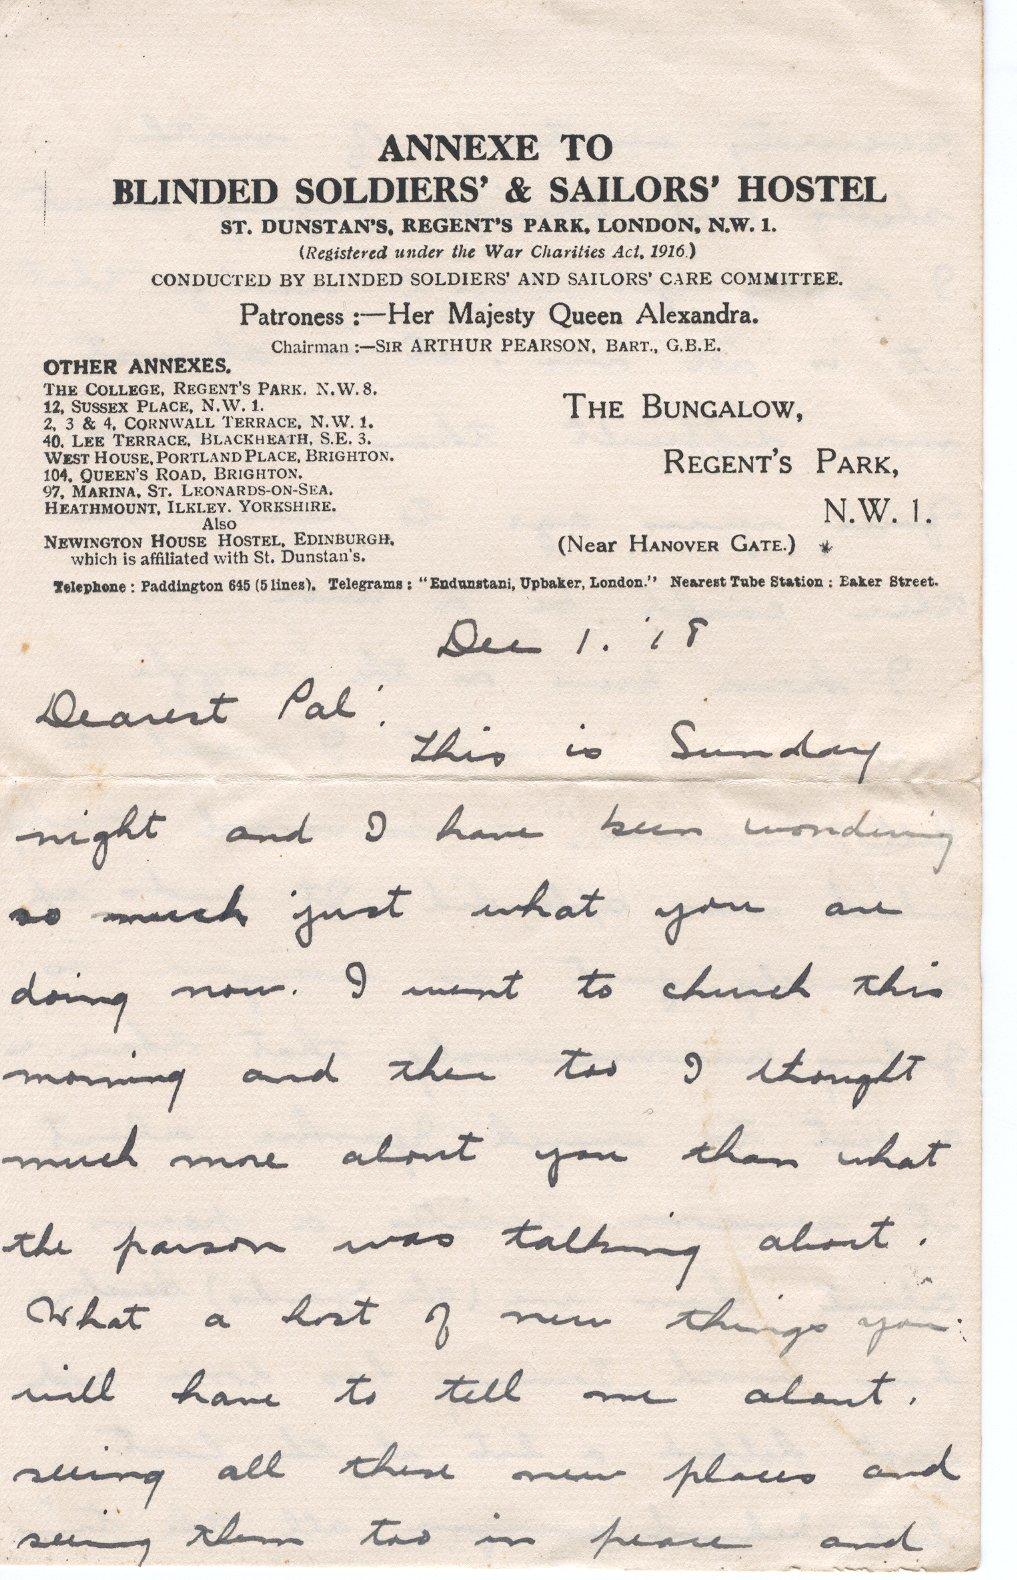 ANNEXE TO
BLINDED SOLDIERS' & SAILORS' HOSTEL
ST. DUNSTAN'S, REGENT'S PARK, LONDON, N.W. 1.
(Registered under the War Charities Act, 1916.)
CONDUCTED BY BLINDED SOLDIERS' AND SAILORS' CARE COMMITTEE.
Patroness :—Her Majesty Queen Alexandra.
Chairman :—SIR ARTHUR PEARSON, BART., G.B.E.
OTHER ANNEXES.
THE COLLEGE, REGENT'S PARK, N.W. 8.
12, SUSSEX PLACE, N.W. 1.
2, 3 & 4, CORNWALL TERRACE, N.W. 1.
40, LEE TERRACE, BLACKHEATH, S.E. 3.
WEST HOUSE, PORTLAND PLACE, BRIGHTON.
104, QUEEN'S ROAD, BRIGHTON.
97, MARINA, ST. LEONARDS-ON-SEA.
HEATHMOUNT, ILKLEY. YORKSHIRE.
Also
NEWINGTON HOUSE HOSTEL, EDINBURGH,
which is affiliated with St. Dunstan's.
THE BUNGALOW,
REGENT'S PARK,
N.W. 1.
(Near HANOVER GATE.)
Telephone : Paddington 645 (5 lines). Telegrams : "Endunstani, Upbaker, London." Nearest Tube Station : Baker Street.
Dec 1. '18
Dearest Pal:
This is Sunday
night and I have been wondering
so much just what you are
doing now. I went to church this
morning and there too I thought
much more about you than what
the parson was talking about.
What a host of new things you
will have to tell me about.
seeing all these new places and
seeing them too in peace and